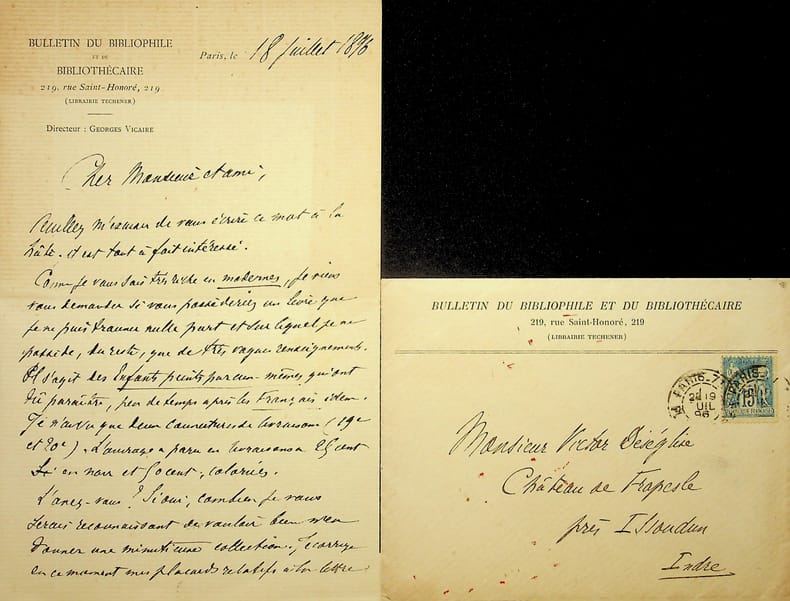 BULLETIN DU BIBLIOPHILE
ET DU
BIBLIOTHÉCAIRE
219, rue Saint-Honoré, 219
(LIBRAIRIE TECHENER)
Directeur : GEORGES VICAIRE
Paris, le 18 Juillet 1896
Cher Monsieur et ami,
Veuillez m'excuser de vous écrire ce mot à la
hâte. Il est tout à fait intéressé.
Comme je vous sais très riche en modernes, je viens
vous demander si vous posséderiez un livre que
je ne puis trouver nulle part et sur lequel je ne
possède, du reste, que de très vagues renseignements.
Il s'agit des Enfants peints par eux-mêmes, qui ont
dû paraître, peu de temps après les Français idem.
Je n'ai vu que deux couvertures de livraison (19e
et 20e). L'ouvrage a paru en livraisons à 25 cent
en noir et 50 cent, coloriées.
L'avez-vous ? Si oui, combien je vous
serais reconnaissant de vouloir bien m'en
donner une minutieuse collection. Je corrige
en ce moment mes placards relatifs à la lettre
BULLETIN DU BIBLIOPHILE ET DU BIBLIOTHÉCAIRE
219, rue Saint-Honoré, 219
(LIBRAIRIE TECHENER)
PARIS
19
JUIL
96
15
Monsieur Victor Déséglise
Château de Frapesle
près Issoudun
Indre